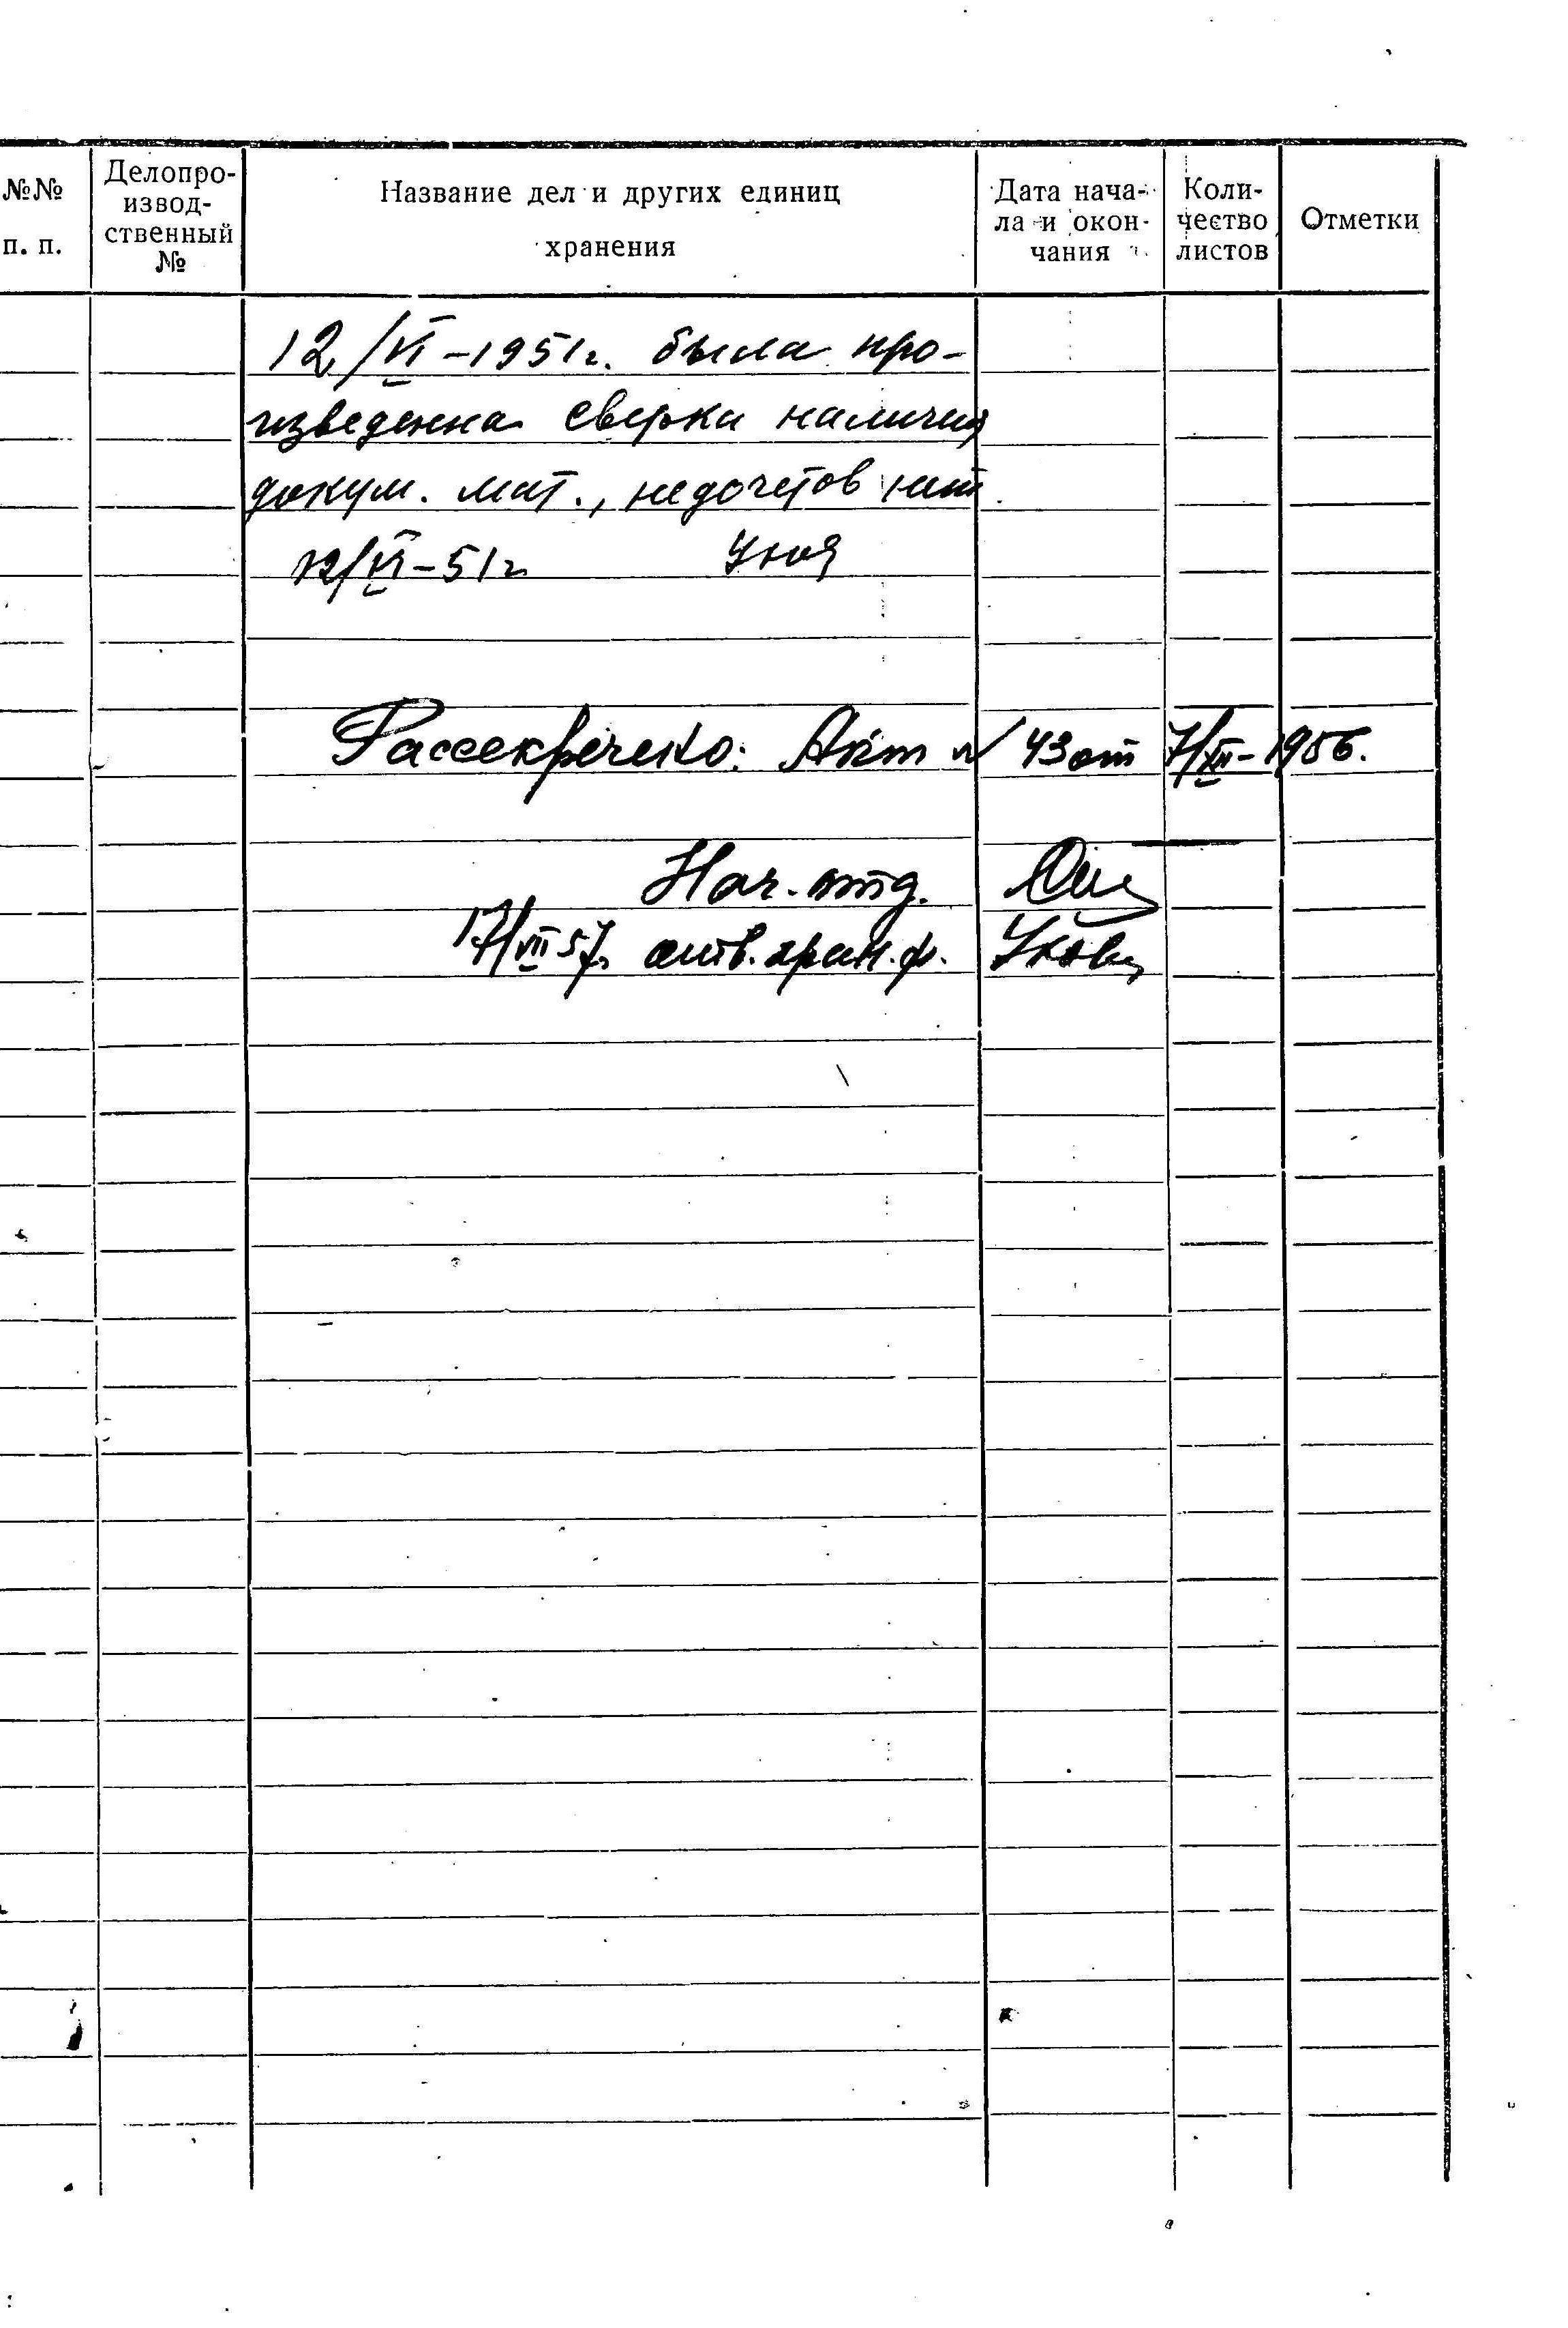 №№ п. п.
Делопро-
извод-
ственный
№
Название дел и других единиц
хранения
Дата нача-
ла и окон-
чания
Коли-
чество
листов
Отметки
12/VI-1951г. была про-
изведенна сверка наличия
докум. мат., недочетов нет
12/VI-51г
Рассекречено: Акт № 43 от 7/XII-1956.
Нач. отд.
17/VII 57г. отв. хран. ф.